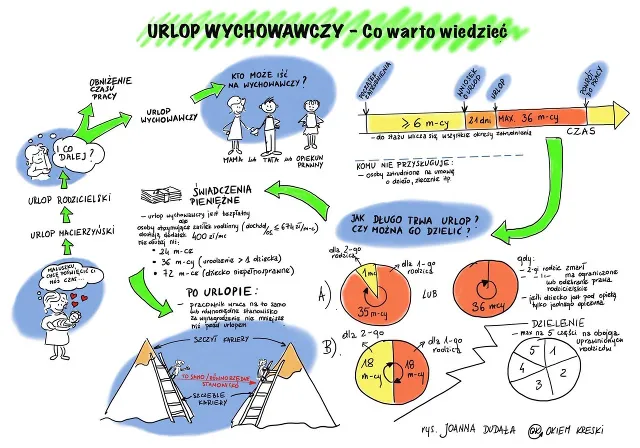 URLOP WYCHOWAWCZY - Co warto wiedzieć
OBNIŻENIE
CZASU
PRACY
URLOP
WYCHOWAWCZY
I CO
DALEJ?
URLOP RODZICIELSKI
URLOP MACIERZYŃSKI
MALUSZKU,
CHCĘ POŚWIĘCIĆ CI
MÓJ CZAS...
KTO MOŻE IŚĆ
NA WYCHOWAWCZY?
MAMA lub TATA lub OPIEKUN
PRAWNY
POCZĄTEK
ZATRUDNIENIA
WNIOSEK
O URLOP
URLOP
POWRÓT
DO PRACY
≥ 6 m-cy
21 dni
MAX. 36 m-cy
- do stażu wlicza się wszystkie okresy zatrudnienia
CZAS
KOMU NIE PRZYSŁUGUJE:
- osoby zatrudnione na umowę
o dzieło, zlecenie itp.
ŚWIADCZENIA
PIENIĘŻNE
- urlop wychowawczy jest bezpłatny
ale
osoby otrzymujące zasiłek rodzinny (dochód/os ≤ 674 zł/m-c)
dostają dodatek 400 zł/mc
nie dłużej niż:
• 24 m-ce
• 36 m-cy (urodzenie > 1 dziecka)
• 72 m-ce (dziecko niepełnosprawne)
JAK DŁUGO TRWA URLOP?
CZY MOŻNA GO DZIELIĆ?
A).
dla 2-go
rodzica
1 mc
dla 1-go
rodzica
35 m-cy
LUB
36 m-cy
gdy:
- 2-gi rodzic zmarł
- ma ograniczone
lub odebrane prawa
rodzicielskie
- jeśli dziecko jest pod opieką
tylko jednego opiekuna
B).
dla 2-go
rodzica
dla 1-go
rodzica
18
m-cy
18
m-cy
DZIELENIE
- max na 5 części na obojga
uprawnionych
rodziców
1
2
3
4
5
PO URLOPIE:
- pracownik wraca na to samo
lub równorzędne stanowisko
za wynagrodzenie nie mniejsze
niż przed urlopem
SZCZYT KARIERY
TO SAMO / RÓWNORZĘDNE
STANOWISKO
SZCZEBLE
KARIERY
rys. JOANNA DUDAŁA
OK, OKIEM KRESKI